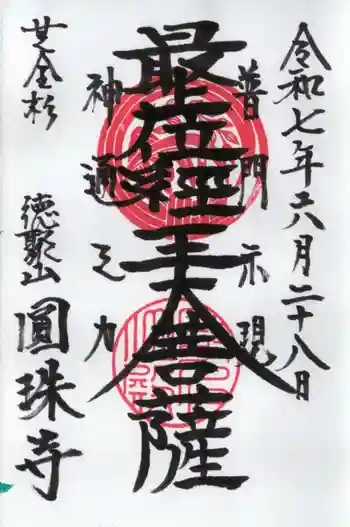 令和七年六月二十八日
普門示現
最上位経王大菩薩
神通之力
芝金杉
徳聚山
圓珠寺